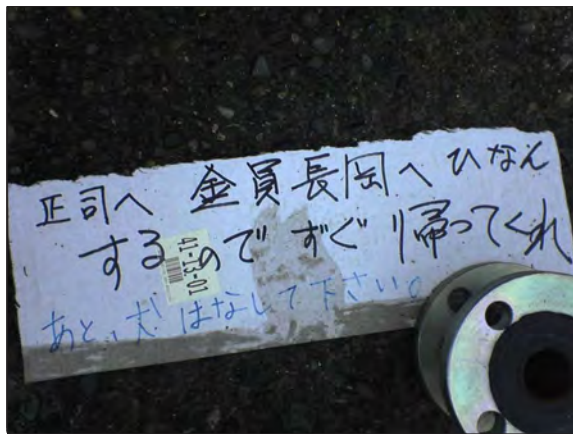 正司へ 金員長岡へひなん
するので ずぐ帰ってくれ
41-13-01
あと、犬はなして下さい。